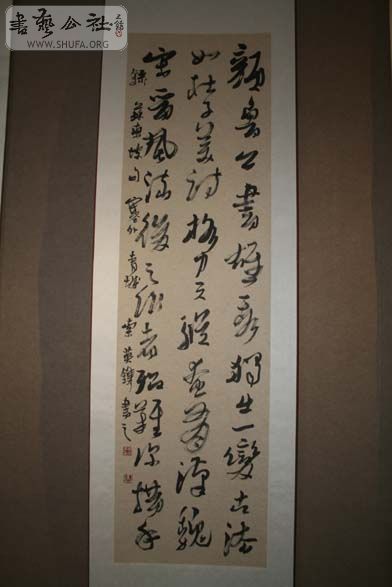 書藝公社
WWW.SHUFA.ORG
顏魯公書雄秀獨出一變古法
如杜子美詩格力天縱奄有漢魏
宋晉風流後之作者殆難復措手
錄蘇東坡句塞外青城英書之